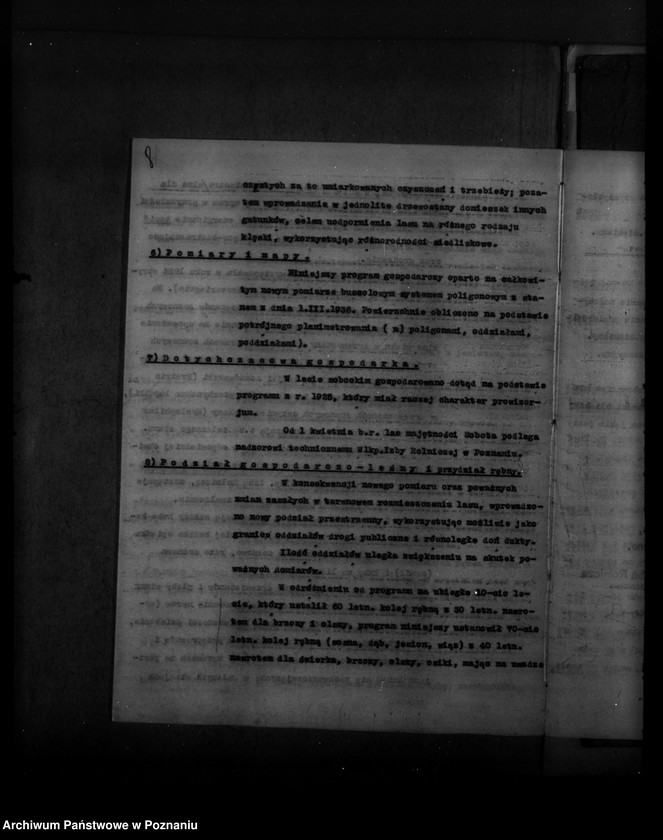 8
czystych za to umiarkowanych czyszczeń i trzebieży; poza-
tem wprowadzanie w jednolite drzewostany domieszek innych
gatunków, celem uodpornienia lasu na różnego rodzaju
klęski, wykorzystując różnorodności siedliskowe.
6) Pomiary i mapy.
Niniejszy program gospodarczy oparto na całkowi-
tym nowym pomiarze bussolowym systemem poligonowym z sta-
nem z dnia 1.III.1936. Powierzchnie obliczono na podstawie
potrójnego planimetrowania ( m) poligonami, oddziałami,
poddziałami).
7) Dotychczasowa gospodarka.
W lesie sobockim gospodarowano dotąd na podstawie
programu z r. 1925, który miał raczej charakter prowizor-
jum.
Od 1 kwietnia b.r. las majętności Sobota podlega
nadzorowi technicznemu Wlkp.Izby Rolniczej w Poznaniu.
8) Podział gospodarczo-leśny i przydział rębny.
W konsekwencji nowego pomiaru oraz poważnych
zmian zaszłych w tarasowem rozmieszczeniu lasu, wprowadzo-
no nowy podział przestrzenny, wykorzystując możliwie jako
granice oddziałów drogi publiczne i równoległe doń dukty.
Ilość oddziałów uległa zwiększeniu na skutek po-
ważnych domiarów.
W odróżnieniu od programu na ubiegłe 10-cio le-
cie, który ustalił 60 letn. kolej rębną z 30 letn. nawro-
tem dla brzozy i olszy, program niniejszy ustanowił 70-cio
letn. kolej rębną (sosna, dąb, jesion, wiąz) z 40 letn.
nawrotem dla świerka, brzozy, olszy, osiki, mając na uwadze
Archiwum Państwowe w Poznaniu